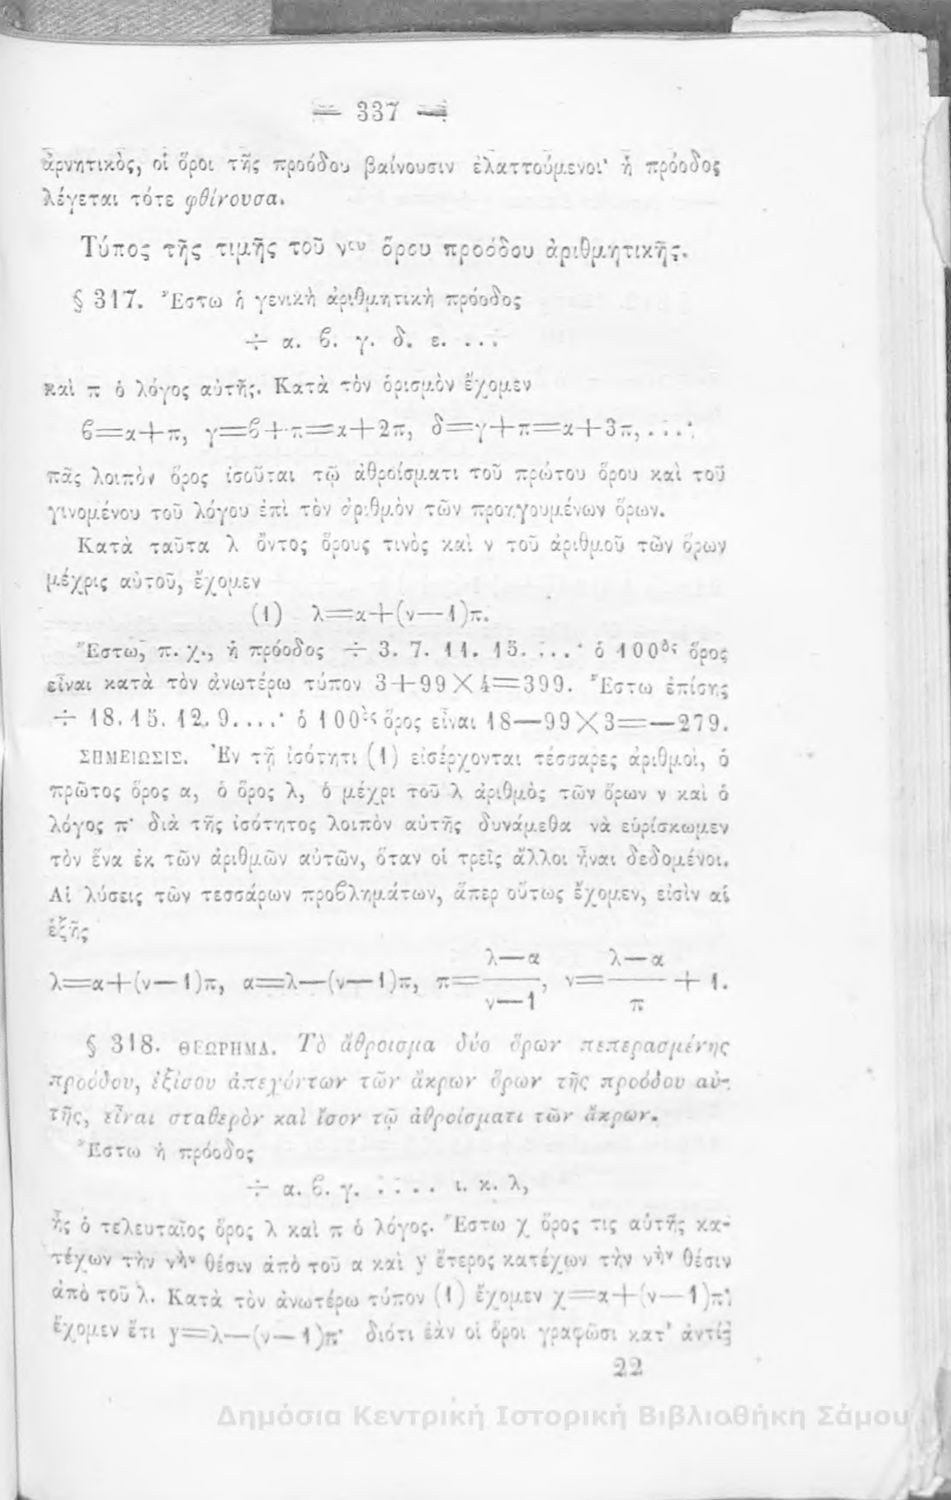 — 337 —
ἀρνητικὸς, οἱ ὅροι τῆς προόδου βαίνουσιν ἐλαττούμενοι· ἡ πρόοδος
λέγεται τότε φθίνουσα.
Τύπος τῆς τιμῆς τοῦ νου ὅρου προόδου ἀριθμητικῆς.
§ 317. Ἔστω ἡ γενικὴ ἀριθμητικὴ πρόοδος
÷ α. ϐ. γ. δ. ε. ...
καὶ π ὁ λόγος αὐτῆς. Κατὰ τὸν ὁρισμὸν ἔχομεν
ϐ=α+π, γ=ϐ+π=α+2π, δ=γ+π=α+3π,...·
πᾶς λοιπὸν ὅρος ἰσοῦται τῷ ἀθροίσματι τοῦ πρώτου ὅρου καὶ τοῦ
γινομένου τοῦ λόγου ἐπὶ τὸν ἀριθμὸν τῶν προηγουμένων ὅρων.
Κατὰ ταῦτα λ ὄντος ὅρους τινὸς καὶ ν τοῦ ἀριθμοῦ τῶν ὅρων
μέχρις αὐτοῦ, ἔχομεν
(1) λ=α+(ν—1)π.
Ἔστω, π. χ., ἡ πρόοδος ÷ 3. 7. 11. 15. ...· ὁ 100ὸς ὅρος
εἶναι κατὰ τὸν ἀνωτέρω τύπον 3+99×4=399. Ἔστω ἐπίσης
÷ 18. 15. 12. 9....· ὁ 100ὸς ὅρος εἶναι 18—99×3=—279.
ΣΗΜΕΙΩΣΙΣ. Ἐν τῇ ἰσότητι (1) εἰσέρχονται τέσσαρες ἀριθμοὶ, ὁ
πρῶτος ὅρος α, ὁ ὅρος λ, ὁ μέχρι τοῦ λ ἀριθμὸς τῶν ὅρων ν καὶ ὁ
λόγος π· διὰ τῆς ἰσότητος λοιπὸν αὐτῆς δυνάμεθα νὰ εὑρίσκωμεν
τὸν ἕνα ἐκ τῶν ἀριθμῶν αὐτῶν, ὅταν οἱ τρεῖς ἄλλοι ἦναι δεδομένοι.
Αἱ λύσεις τῶν τεσσάρων προϐλημάτων, ἅπερ οὕτως ἔχομεν, εἰσὶν αἱ
ἑξῆς
λ=α+(ν—1)π, α=λ—(ν—1)π, π=λ—α/ν—1, ν=λ—α/π + 1.
§ 318. ΘΕΩΡΗΜΑ. Τὸ ἄθροισμα δύο ὅρων πεπερασμένης
προόδου, ἐξίσου ἀπεχόντων τῶν ἄκρων ὅρων τῆς προόδου αὐ-
τῆς, εἶναι σταθερὸν καὶ ἴσον τῷ ἀθροίσματι τῶν ἄκρων.
Ἔστω ἡ πρόοδος
÷ α. ϐ. γ. .... ι. κ. λ,
ἧς ὁ τελευταῖος ὅρος λ καὶ π ὁ λόγος. Ἔστω χ ὅρος τις αὐτῆς κα-
τέχων τὴν νὴν θέσιν ἀπὸ τοῦ α καὶ y ἕτερος κατέχων τὴν νὴν θέσιν
ἀπὸ τοῦ λ. Κατὰ τὸν ἀνωτέρω τύπον (1) ἔχομεν χ=α+(ν—1)π·
ἔχομεν ἔτι y=λ—(ν—1)π· διότι ἐὰν οἱ ὅροι γραφῶσι κατ' ἀντί-
22
Δημόσια Κεντρική Ιστορική Βιβλιοθήκη Σάμου